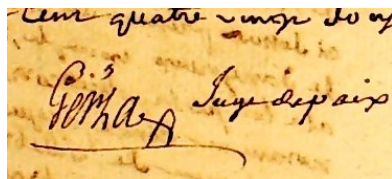 cent quatre vingt douze
Juge de paix